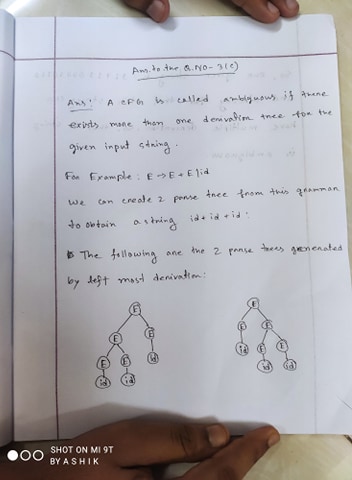 Ans. to the Q. NO - 3(c)
Ans: A CFG is called ambiguous if there
exists more than one derivation tree for the
given input string.
For Example: E → E + E | id
We can create 2 parse tree from this grammar
to obtain a string id + id + id:
The following are the 2 parse trees generated
by left most derivation:
E E
E E E E
E E id id E E
id id id id
SHOT ON MI 9T
BY ASHIK